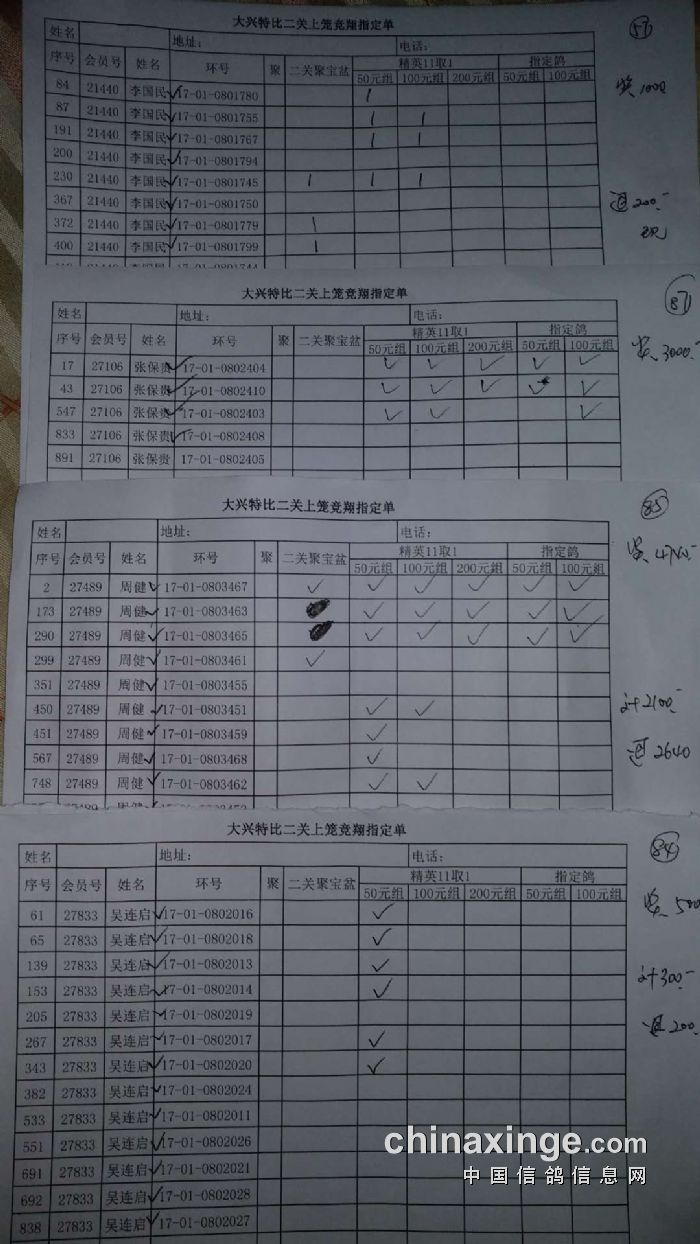 大兴特比二关上笼竞翔指定单
57
姓名 地址: 电话:
序号 会员号 姓名 环号 聚 二关聚宝盆 精英11取1 指定鸽
50元组 100元组 200元组 50元组 100元组
84 21440 李国民 ✓ 17-01-0801780 1
奖1000
87 21440 李国民 ✓ 17-01-0801755 1 1
191 21440 李国民 ✓ 17-01-0801767 1 1
200 21440 李国民 ✓ 17-01-0801794
230 21440 李国民 ✓ 17-01-0801745 1 1 1
367 21440 李国民 ✓ 17-01-0801750
退200.-
372 21440 李国民 ✓ 17-01-0801779 1
现
400 21440 李国民 ✓ 17-01-0801799 1
大兴特比二关上笼竞翔指定单
87
姓名 地址: 电话:
序号 会员号 姓名 环号 聚 二关聚宝盆 精英11取1 指定鸽
50元组 100元组 200元组 50元组 100元组
奖3000.-
17 27106 张保贵 ✓ 17-01-0802404 ✓ ✓ ✓ ✓ ✓
43 27106 张保贵 ✓ 17-01-0802410 ✓ ✓ ✓ ✓ ✓
547 27106 张保贵 ✓ 17-01-0802403 ✓ ✓ ✓
833 27106 张保贵 ✓ 17-01-0802408
891 27106 张保贵 17-01-0802405
大兴特比二关上笼竞翔指定单
85
姓名 地址: 电话:
序号 会员号 姓名 环号 聚 二关聚宝盆 精英11取1 指定鸽
50元组 100元组 200元组 50元组 100元组
2 27489 周健 ✓ 17-01-0803467 ✓ ✓ ✓ ✓ ✓ ✓
173 27489 周健 ✓ 17-01-0803463 ✓ ✓ ✓ ✓ ✓
290 27489 周健 ✓ 17-01-0803465 ✓ ✓ ✓ ✓ ✓
299 27489 周健 ✓ 17-01-0803461 ✓
351 27489 周健 ✓ 17-01-0803455
450 27489 周健 ✓ 17-01-0803451 ✓ ✓
计2100.-
451 27489 周健 ✓ 17-01-0803459 ✓
567 27489 周健 ✓ 17-01-0803468 ✓
退2640
748 27489 周健 ✓ 17-01-0803462 ✓ ✓
大兴特比二关上笼竞翔指定单
84
姓名 地址: 电话:
序号 会员号 姓名 环号 聚 二关聚宝盆 精英11取1 指定鸽
50元组 100元组 200元组 50元组 100元组
奖500
61 27833 吴连启 ✓ 17-01-0802016 ✓
65 27833 吴连启 ✓ 17-01-0802018 ✓
139 27833 吴连启 ✓ 17-01-0802013 ✓
计300.-
153 27833 吴连启 ✓ 17-01-0802014 ✓
205 27833 吴连启 ✓ 17-01-0802019
退200.
267 27833 吴连启 ✓ 17-01-0802017 ✓
343 27833 吴连启 ✓ 17-01-0802020 ✓
382 27833 吴连启 ✓ 17-01-0802024
533 27833 吴连启 ✓ 17-01-0802011
551 27833 吴连启 ✓ 17-01-0802026
691 27833 吴连启 ✓ 17-01-0802021
692 27833 吴连启 ✓ 17-01-0802028
838 27833 吴连启 ✓ 17-01-0802027
chinaxinge.com
中国信鸽信息网